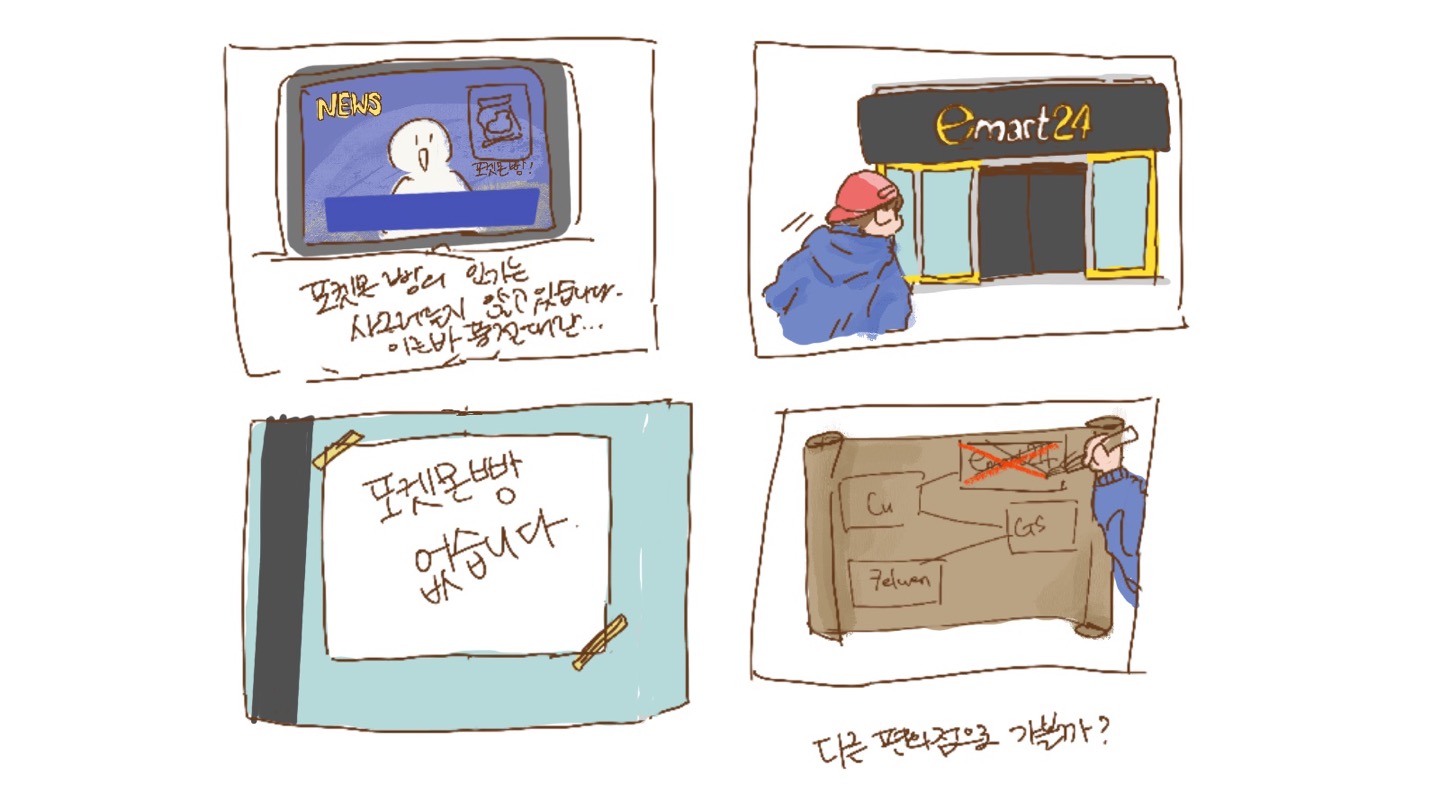 NEWS
포켓몬빵!
포켓몬 빵의 인기는
사그러들지 않고 있습니다.
이른바 품절대란...
emart24
포켓몬빵
없습니다.
emart24
Cu
GS
7eleven
다른 편의점으로 가볼까?